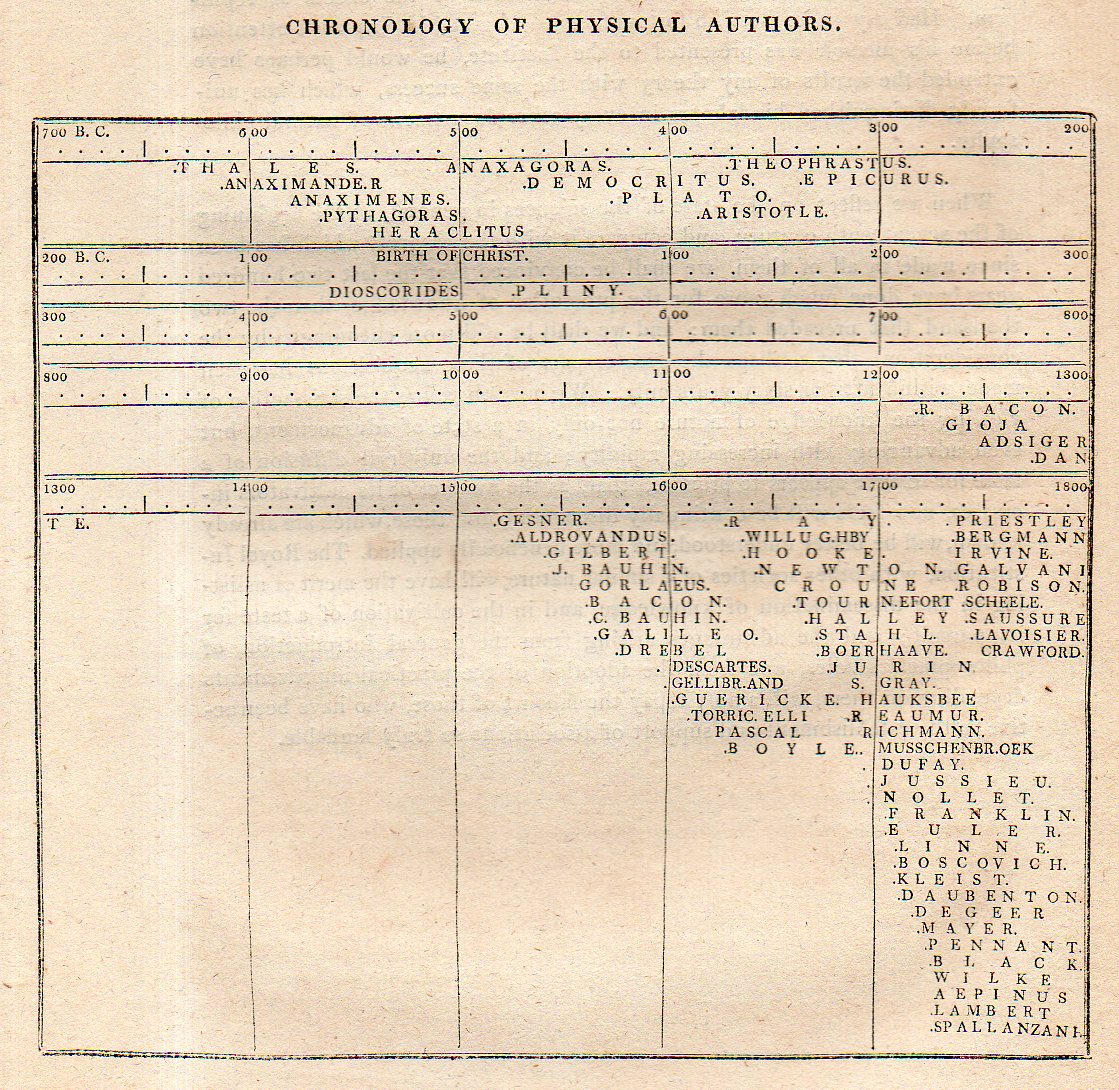 CHRONOLOGY OF PHYSICAL AUTHORS.
700 B. C. 600 500 400 300 200
.THALES. ANAXAGORAS. .THEOPHRASTUS.
.ANAXIMANDE.R .DEMOCRITUS. .EPICURUS.
ANAXIMENES. .PLATO.
.PYTHAGORAS. .ARISTOTLE.
HERACLITUS
200 B. C. 100 BIRTH OF CHRIST. 100 200 300
DIOSCORIDES .PLINY.
300 400 500 600 700 800
800 900 1000 1100 1200 1300
.R. BACON.
GIOJA
ADSIGER
.DAN
1300 1400 1500 1600 1700 1800
TE. .GESNER. .RAY. .PRIESTLEY
.ALDROVANDUS. .WILLUG.HBY .BERGMANN
.GILBERT. .HOOKE. IRVINE.
J. BAUHIN. .NEWTON. .GALVANI
GORLAEUS. CROUNE .ROBISON.
.BACON. .TOURNEFORT .SCHEELE.
.C. BAUHIN. .HALLEY .SAUSSURE
.GALILEO. .STAHL. .LAVOISIER.
.DREBEL .BOERHAAVE. CRAWFORD.
.DESCARTES. .JURIN.
.GELLIBR.AND S. GRAY.
.GUERICKE. HAUKSBEE
.TORRIC.ELLI .REAUMUR.
PASCAL RICHMANN.
.BOYLE. .MUSSCHENBR.OEK
.DUFAY.
.JUSSIEU.
.NOLLET.
.FRANKLIN.
.EULER.
.LINNE.
.BOSCOVICH.
.KLEIST.
.DAUBENTON.
.DEGEER
.MAYER.
.PENNANT.
.BLACK.
WILKE
AEPINUS
.LAMBERT
.SPALLANZANI.